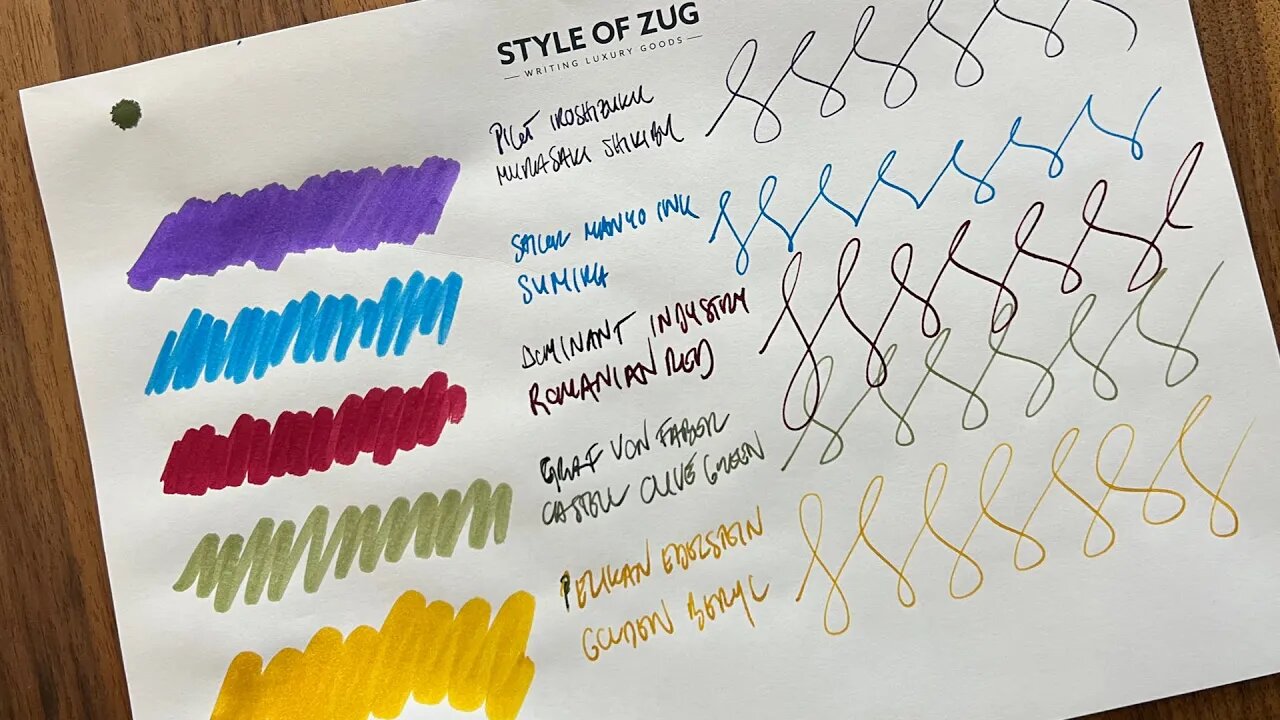 STYLE OF ZUG
WRITING LUXURY GOODS
PILOT IROSHIZUKU
MURASAKI SHIKIBU
SAILOR MANYO INK
SUMIRA
DOMINANT INDUSTRY
ROMANIAN RED
GRAF VON FABER
CASTELL OLIVE GREEN
PELIKAN EDELSTEIN
GOLDEN BERYL